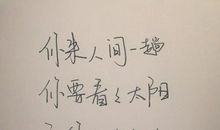 你来人间一趟
你要看看太阳